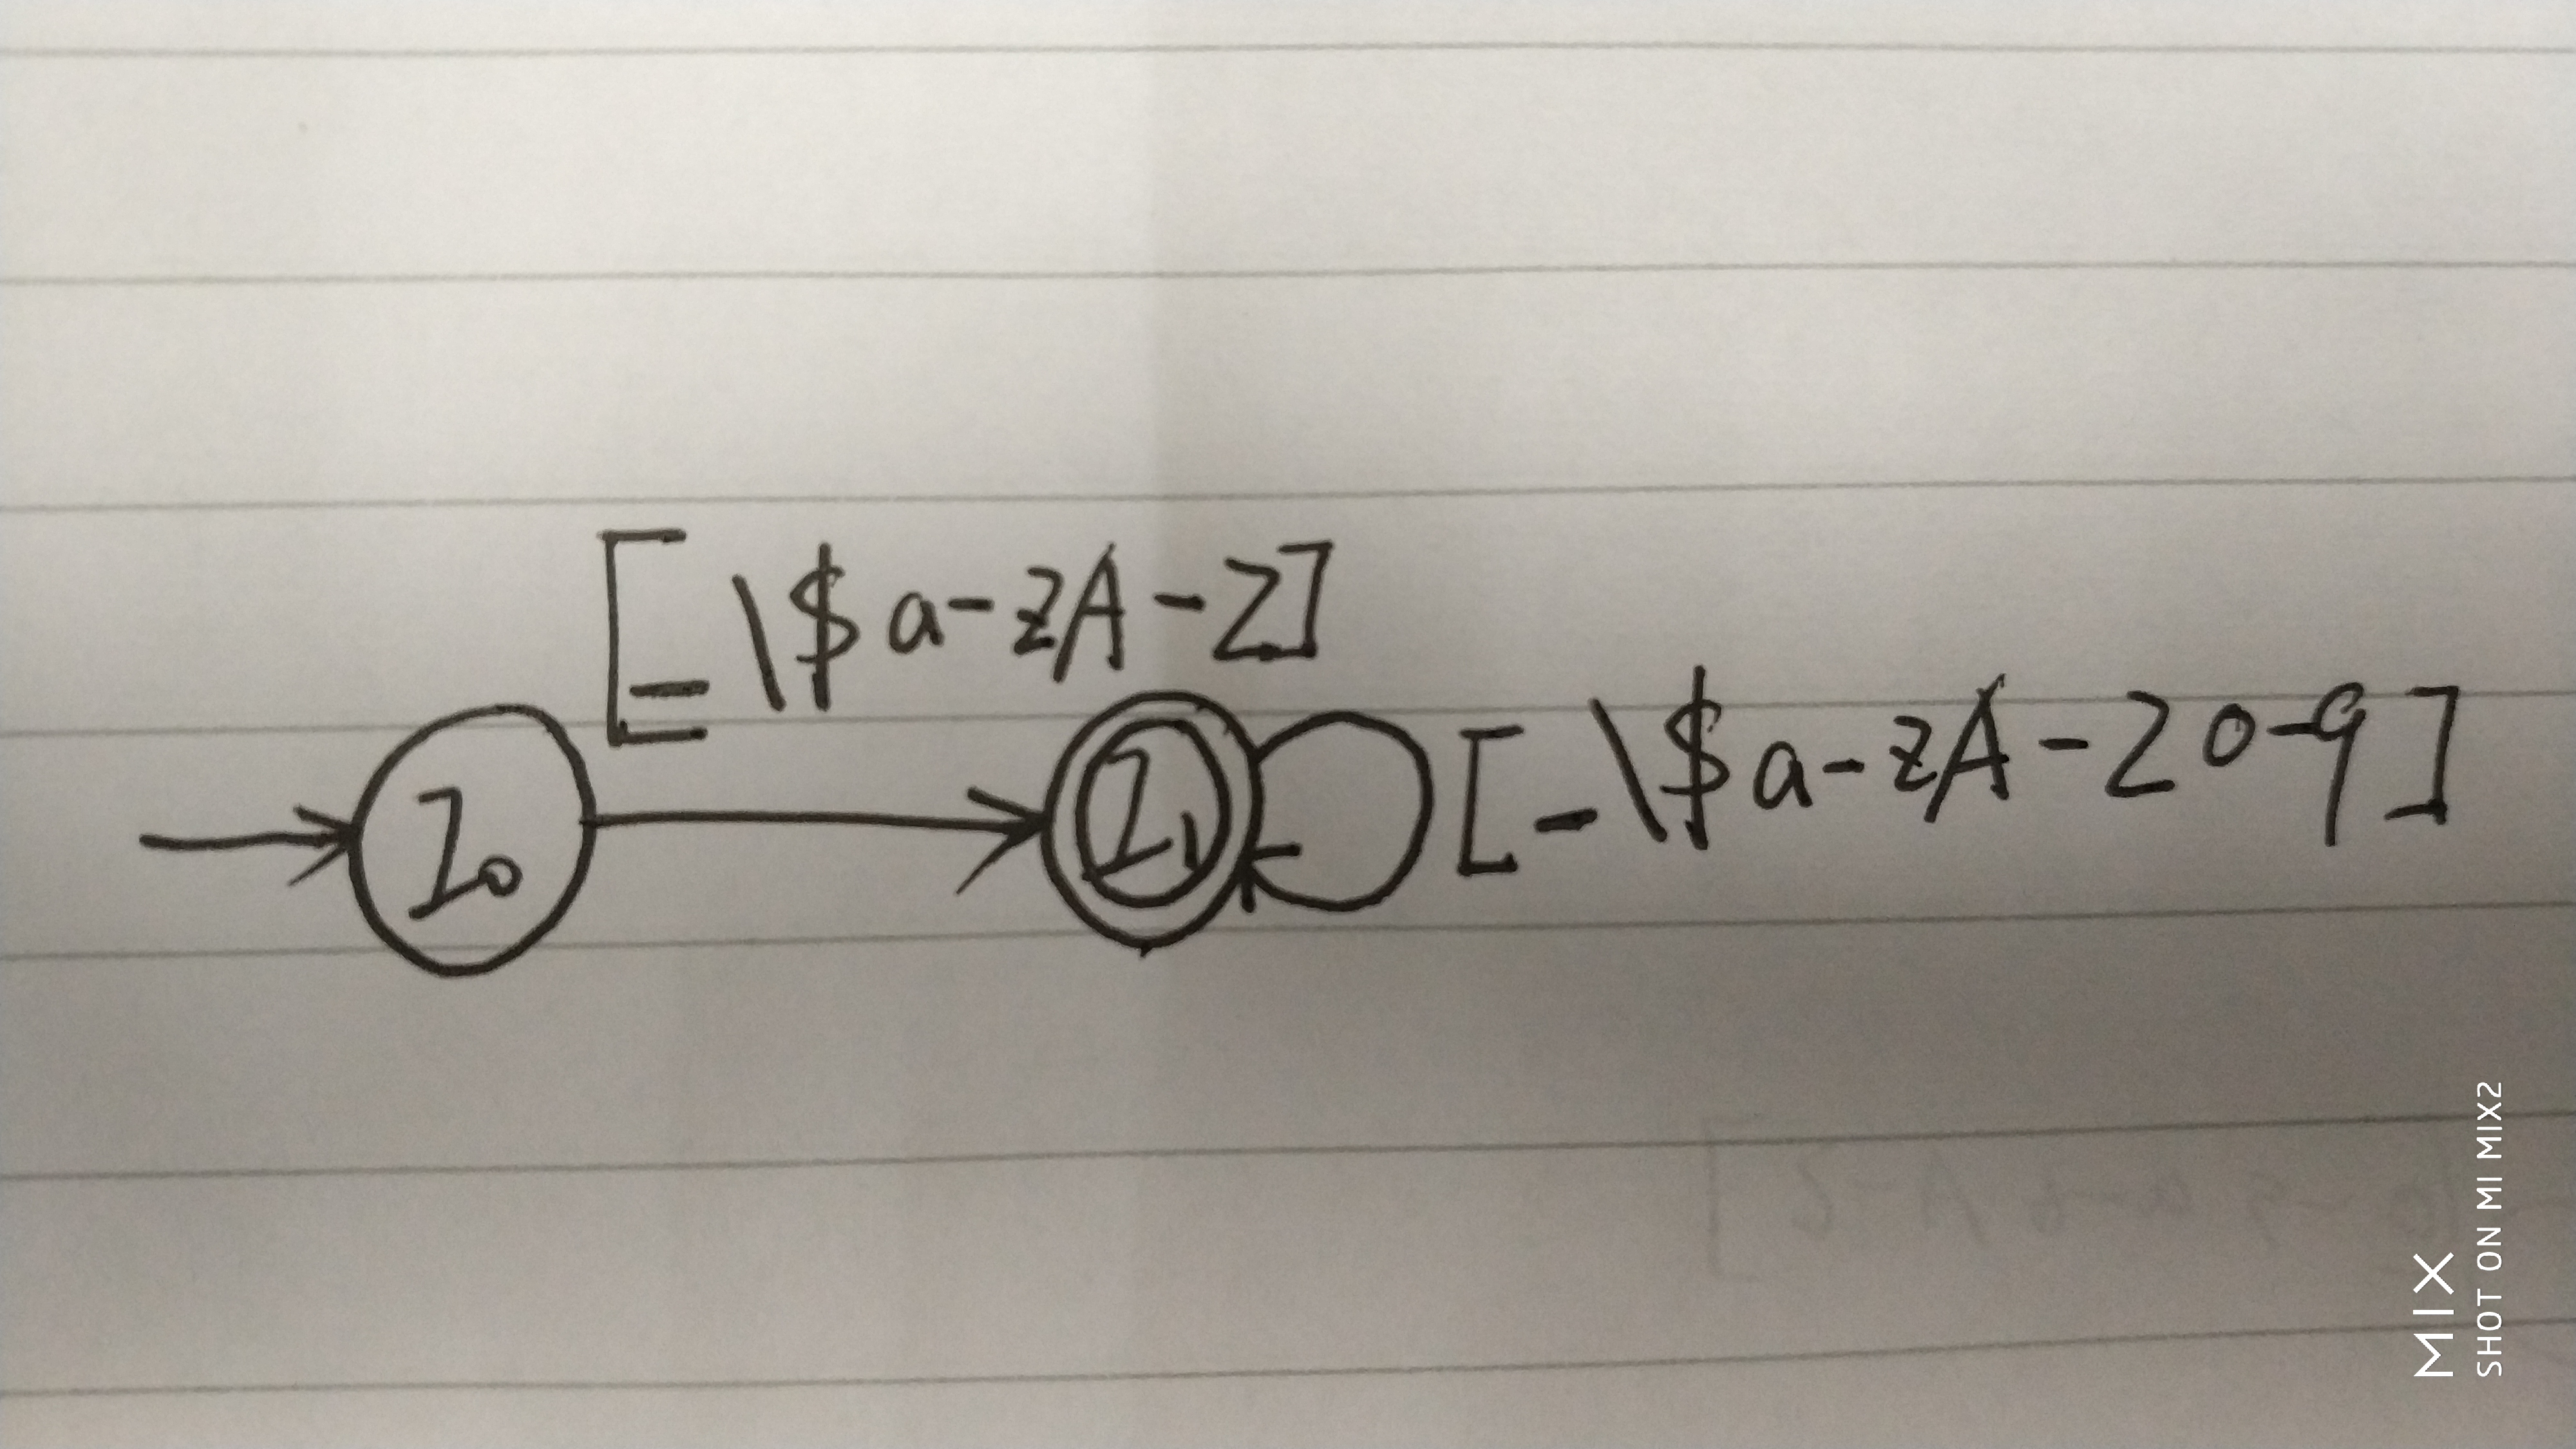 [_\$a-zA-Z]
q0
q1
[_\$a-zA-Z0-9]
MIX
SHOT ON MI MIX2